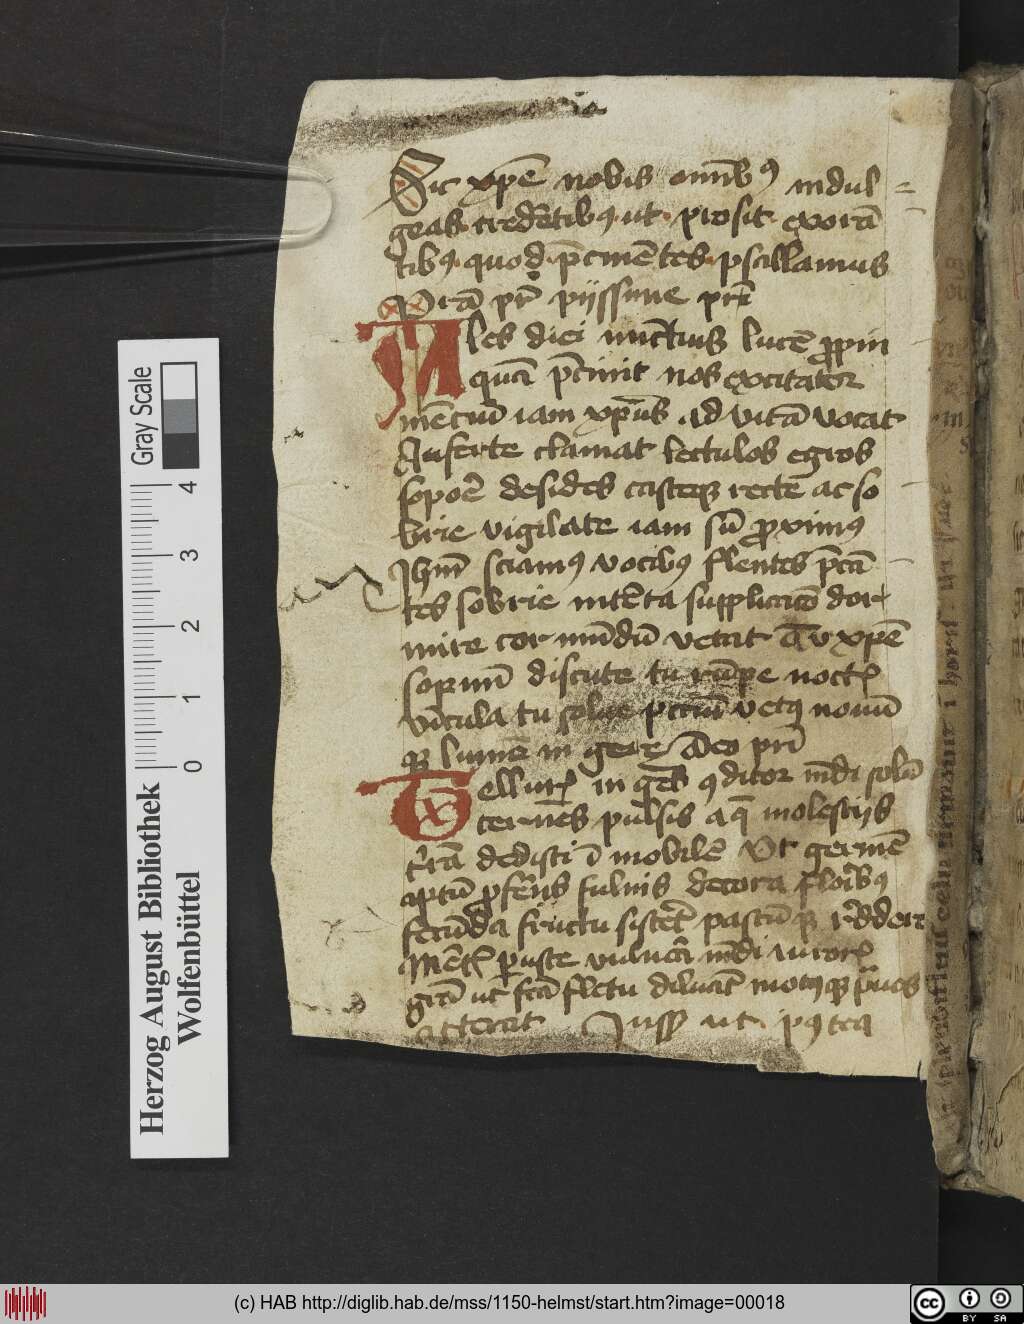 Sic xp̄e nobis om̅ib9 indul⸗
geas crede̅tib9 ut prosit exora̅
tib9 quod p̄cine̅tes psallamus
P̄sta p̅r pijssime p̅r
Ales diei nu̅ctius luce̅ ꝓpin
qua̅ p̄cinit nos excitator
me̅ciu̅ iam xp̅us ad vita̅ vocat
Auferte clamat lectulos egros
sopore̅ desides casteqꝫ recte ac so
brie vigilate iam su̅ ꝓximus
Jhm̅ sciam9 vocib9 flentes p̄ca̅
tes sobrie inte̅ta supplicacio dor
mire cor mu̅du̅ vetat Tu xp̄e
sopnu̅ discute tu ru̅pe noct
vi̅cula tu solue pctm̅ vet9 nouu̅
qꝫ lume̅ in gere Deo p̅ri
Tellur in ge̅s 9ditor mu̅di solu̅
ter que̅s pulsis aq̅ molestijs
t̅ra̅ dedisti i̅ mobile̅ Ut germe̅
aptu̅ ꝓfere̅s fuluis decora florib9
fecu̅da fructu sistere̅t pastu̅qꝫ r̅dderet
Me̅t ꝑuste vulnera mu̅di viror
gr̅a ut f̅ca fletu diluat motusqꝫ p̅uos
atterat Jussis ut p9tea
Gray Scale
4
3
2
1
0
Herzog August Bibliothek
Wolfenbüttel
(c) HAB http://diglib.hab.de/mss/1150-helmst/start.htm?image=00018
cc
BY SA